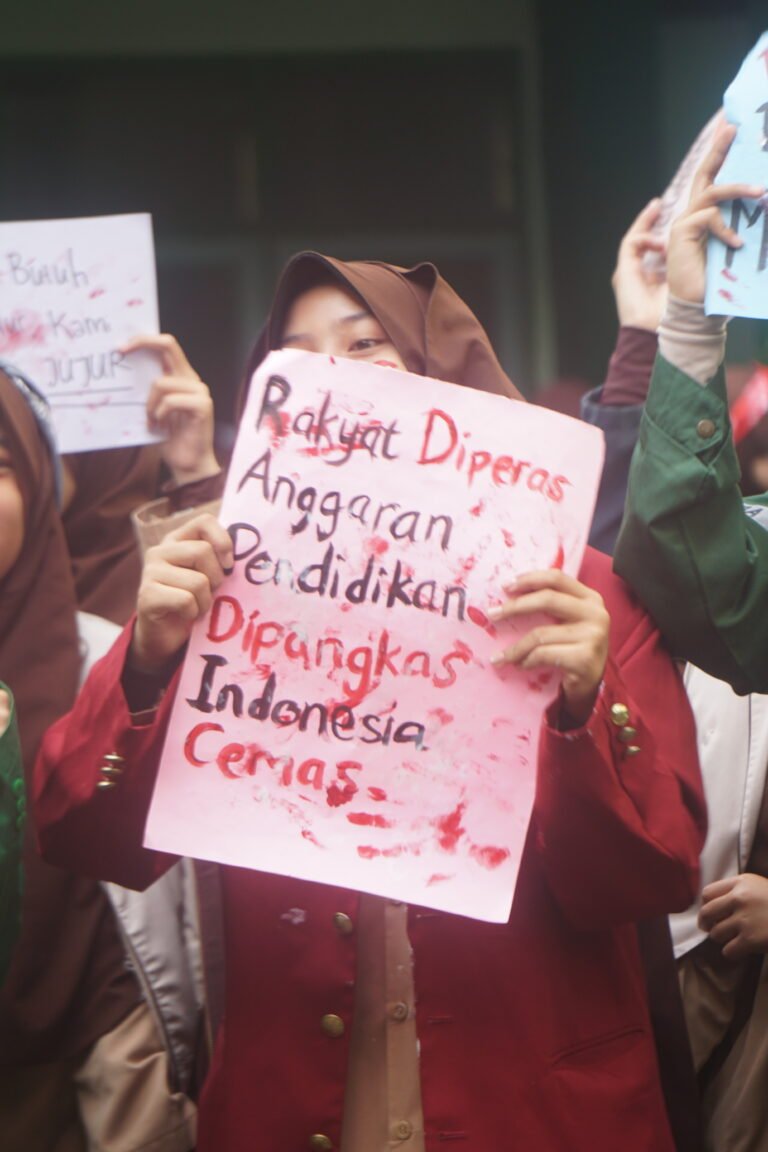 Butuh
Kami
JUJUR
Rakyat Diperas
Anggaran
Pendidikan
Dipangkas
Indonesia
Cemas